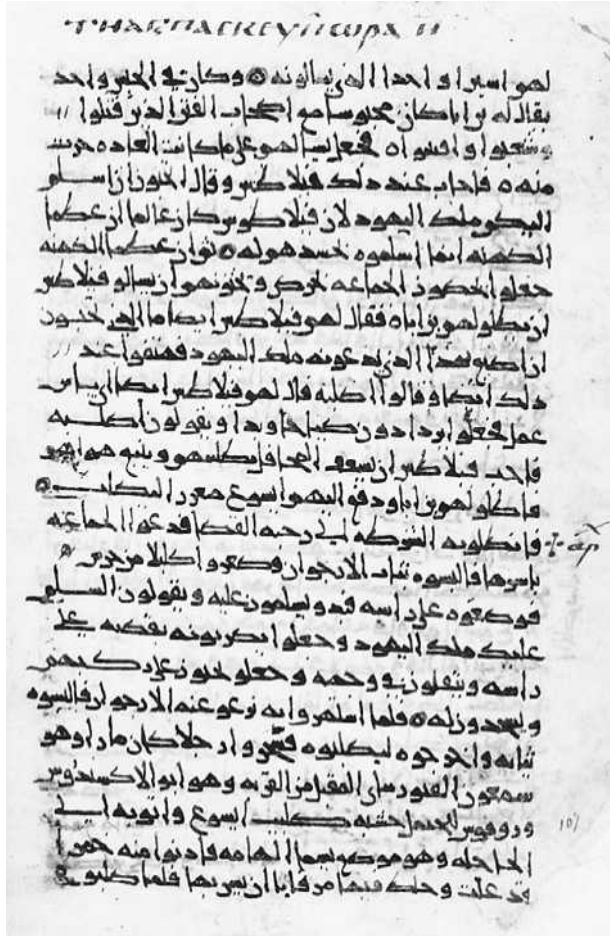 ΤΗ ΑΓ ΠΑΣΚΕΥΗ ΩΡΑ Η
لهم اسيرا واحدا الذي يسالونه وكان في الحبس واحد
يقال له برابا كان محبوسا مع اصحاب الفتن الذين قتلوا
وشغبوا وافتنوا فجعل يسالهم على ما كانت العاده جرت
منه فاجاب عند ذلك فيلاطس وقال اتحبون ان اسلم
اليكم ملك اليهود لان فيلاطوس كان عالما ان عظما
الكهنه انما اسلموه بحسدهم له ثم ان عظما الكهنه
جعلوا يحضون الجماعه ان يسالو فيلاطس
ان يطلق لهم براباه فقال لهم فيلاطس ايضا ما الذي تحبون
ان اصنع بهذا الذي تدعونه ملك اليهود فهتفوا عند
ذلك ايضا وقالوا اصلبه قال لهم فيلاطس ايضا اي باس
عمل فجعلوا يزدادون صياحا ويقولون اصلبه
فاحب فيلاطس ان يسعف المحافل بطلبتهم ويتبع هواهم
فاطلق لهم برابا ودفع اليهم ايسوع للصلب
فانطلق به الشرطه الى رحبه القضا فدعوا الجماعه
باسرها فالبسوه ثياب الارجوان وضفروا اكليلا من
فوضعوه على راسه ويسلمون عليه ويقولون السلم
عليك ملك اليهود وجعلوا يضربونه بقصبه على
راسه ويتفلون في وجهه وجعلوا يحثون على ركبهم
ويسجدون له فلما استهزوا به نزعو عنه الارجوان فالبسوه
ثيابه واخرجوه ليصلبوه فسخروا رجلا كان مارا وهو
سمعون المقبل من القريه وهو ابو الاكسندروس
وروفوس ليحمل خشبه صليب ايسوع واتو به الى
الجاجله وهو موضع يسما الهامه فادنوا منه خمرا
وخلط فيها مر فابا ان يشربها فلما صلبوه